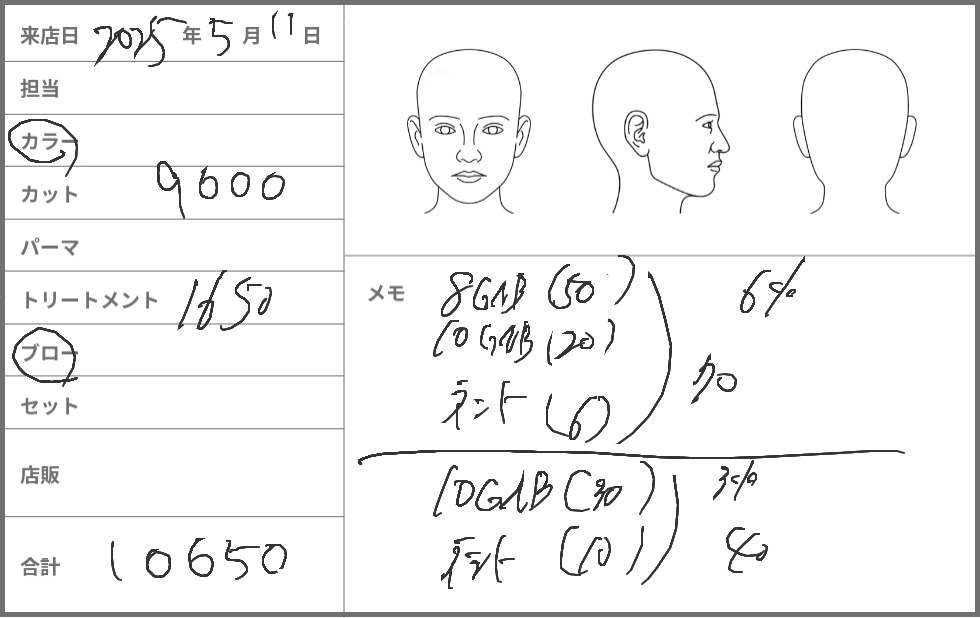 来店日 2025年5月11日
担当
カラー
カット 9600
パーマ
トリートメント 1650
ブロー
セット
店販
合計 10650
メモ
8GNB (50) 6%
10GNB (20)
70
(6)
10GNB (30) 3%
(10) 40